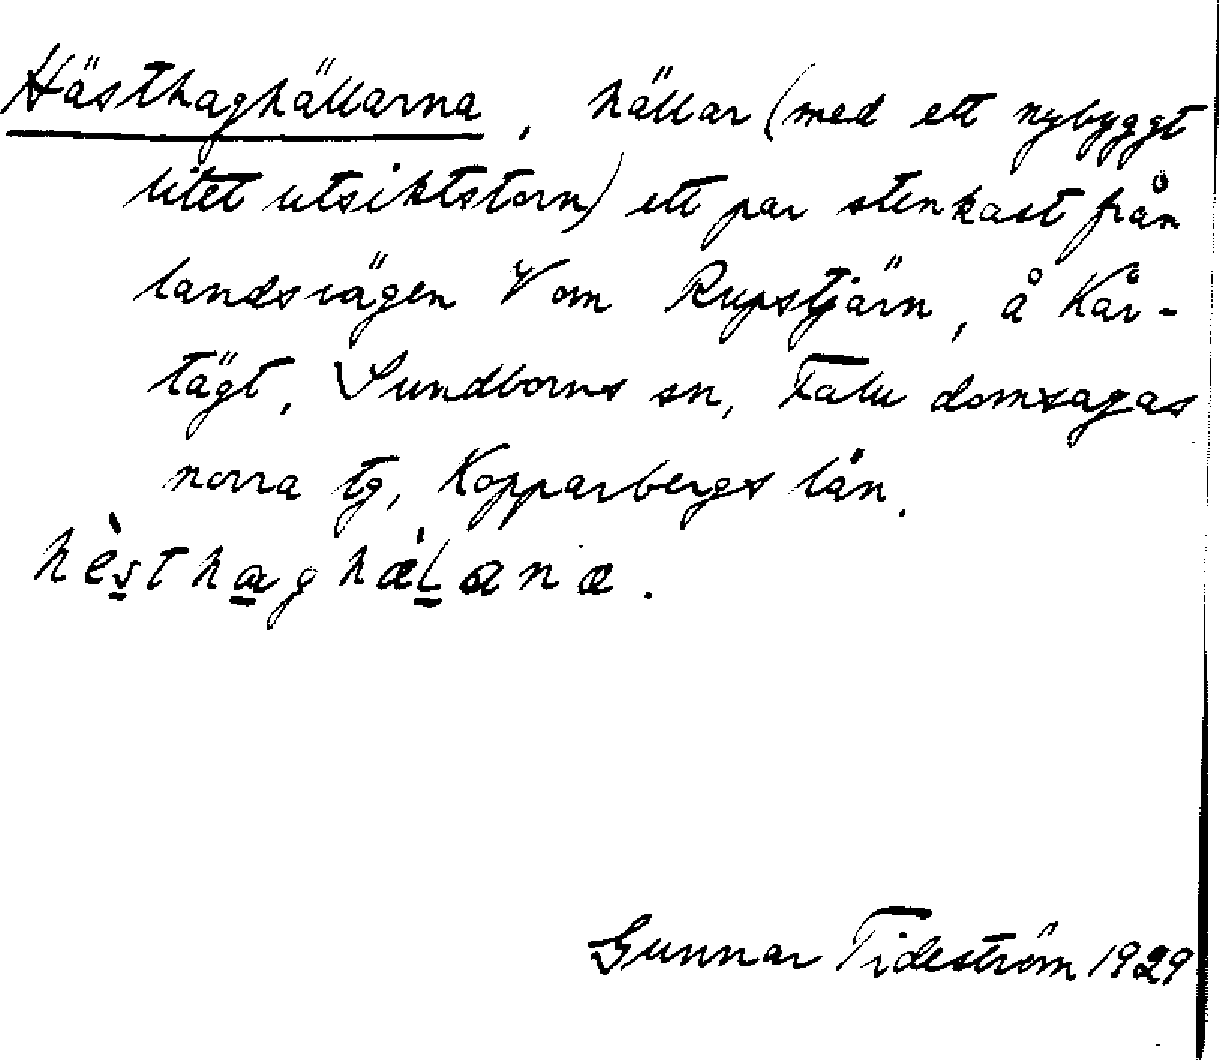 Hästhaghällarna, hällar (med ett nybyggt
litet utsiktstorn) ett par stenkast från
landsvägen V om Rupstjärn, å Kår-
tägt, Sundborns sn, Falu domsagas
norra tg, Kopparbergs län.
hèsthaghæ̀Lana.
Gunnar Tideström 1929